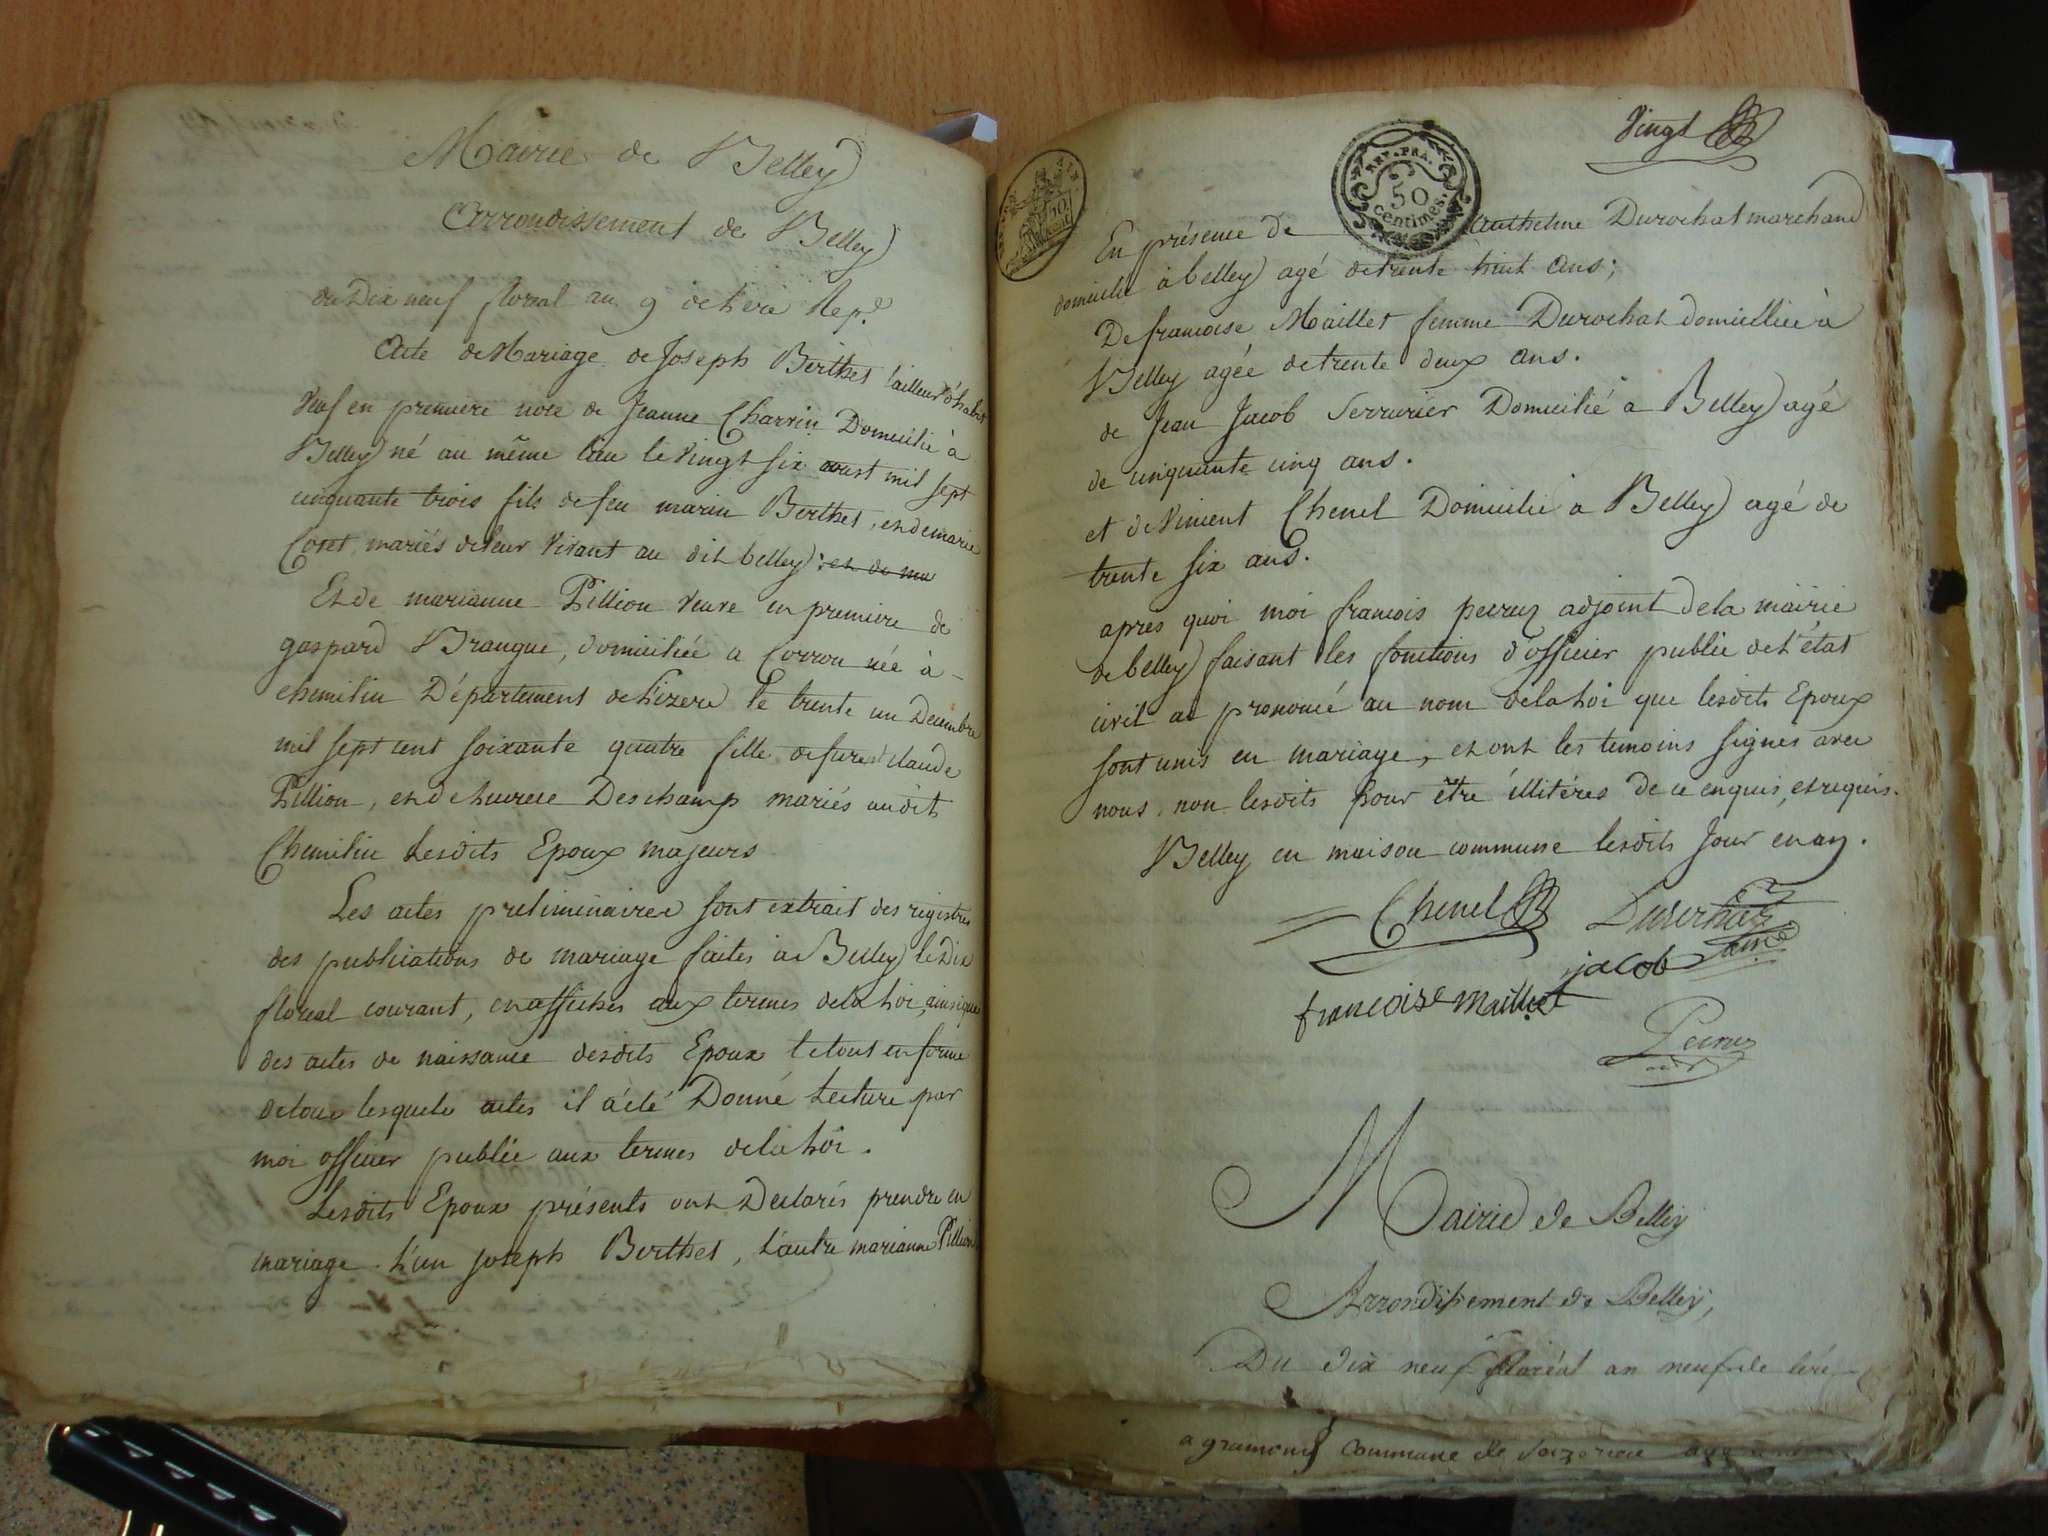 Mairie de Belley
Arrondissement de Belley
du Dix neuf floreal an 9 de l'ere Rep.e
Acte de Mariage de Joseph Berthet tailleur d'habit
Veuf en premiere noce de Jeanne Charvin Domicilié à
Belley né au même lieu le Vingt six aoust mil sept
cinquante trois fils de feu marin Berthet, et de marie
Coret mariés de leur vivant au dit belley; et de ma
Et de marianne Pillion veuve en premiere de
gaspard Brangue, domiciliée a Corron née à
chemilin Département de l'izere le trente un Decembre
mil sept cent soixante quatre fille de furent claude
Pillion, et de Lucrece Deschamp mariés au dit
Chemilin Lesdits Epoux majeurs
Les actes preliminaires sont extrait des registres
des publications de mariage faites à Belley le dix
floreal courant, et affichés aux termes de la loi, ainsi que
des actes de naissance desdits Epoux le tout en forme
de tous lesquels actes il a été Donné Lecture par
moi officier public aux termes de la loi.
Lesdits Epoux présents ont Declarés prendre en
mariage L'un joseph Berthet, L'autre marianne Pillion
Vingt
REP. FRA.
50
centimes.
En présence de Anthelme Durochat marchand
domicilié à belley agé de trente huit ans;
De francoise Maillet femme Durochat domiciliée à
Belley agée de trente deux ans.
de Jean Jacob Serrurier Domicilié à Belley agé
de cinquante cinq ans.
et de Vincent Chenel Domicilié a Belley agé de
trente six ans.
apres quoi moi francois peyruz adjoint de la mairie
de belley faisant les fonctions d'officier public de l'état
civil ai prononcé au nom de la Loi que lesdits Epoux
sont unis en mariage, et ont les temoins signés avec
nous, non lesdits pour être illitérés de ce enquis, et requis.
Belley en maison commune lesdits Jour et an.
Chenel Durochat
jacob ainé
francoise maillet
Peyruz
adjt
Mairie de Belley
Arrondissement de Belley,
Du dix neuf floréal an neuf de l'ére
a gramont Commune de